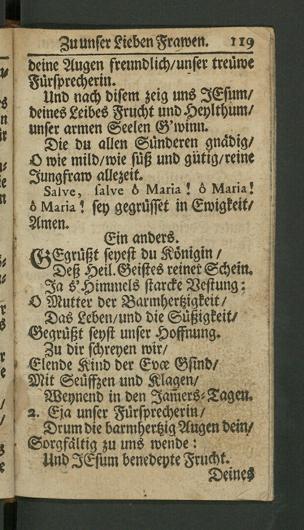 Zu unser Lieben Frawen. 119
deine Augen freundlich/unser treüwe
Fürsprecherin.
Und nach disem zeig uns JEsum/
deines Leibes Frucht und Heylthum/
unser armen Seelen G'winn.
Die du allen Sünderen gnädig/
O wie mild/wie süß und gütig/reine
Jungfraw allezeit.
Salve, salve ô Maria! ô Maria!
ô Maria! sey gegrüsset in Ewigkeit/
Amen.
Ein anders.
GEgrüßt seyest du Königin/
Deß Heil. Geistes reiner Schein.
Ja d' Himmels starcke Vestung:
O Mutter der Barmhertzigkeit/
Das Leben/und die Süßigkeit/
Gegrüßt seyst unser Hoffnung.
Zu dir schreyen wir/
Elende Kind der Evæ Gsind/
Mit Seüffzen und Klagen/
Weynend in den Jamers-Tagen.
2. Eja unser Fürsprecherin/
Drum die barmhertzig Augen dein/
Sorgfältig zu uns wende:
Und JEsum benedeyte Frucht.
Deines